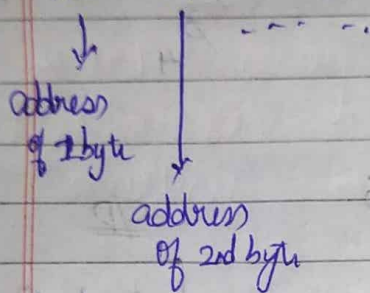 address
of 1 byte
address
of 2nd byte